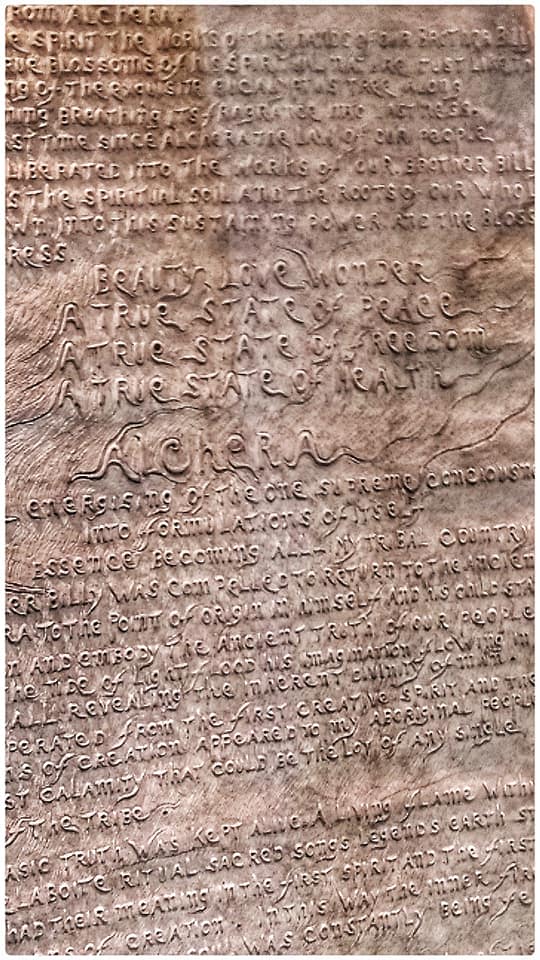 FROM ALCHERA.
SPIRIT THE WORKS OF THE HANDS OF OUR BROTHER BILLY
BLOSSOMS OF HIS SPIRITUAL NATURE JUST LIKE
OF THE EXQUISITE EUCALYPTUS TREE ALONG
BREATHING ITS
TIME SINCE ALCHERA THE LAW OF OUR PEOPLE
LIBERATED INTO THE WORKS OF OUR BROTHER BILLY
THE SPIRITUAL SOIL AND THE ROOTS OF OUR WHOL
INTO THIS SUSTAINING POWER AND THE BLOSS
RESS.
BEAUTY LOVE WONDER
A TRUE STATE OF PEACE
A TRUE STATE OF FREEDOM
A TRUE STATE OF HEALTH
ALCHERA
ENERGISING OF THE ONE SUPREME CONCIOUSNE
INTO FORMULATIONS OF ITSELF
ESSENCE BECOMING ALL MY TRIBAL COUNTRY
ER BILLY WAS COMPELLED TO RETURN TO THE ANCIENT
RA TO THE POINT OF ORIGIN IN HIMSELF AND HIS CHILD
AND EMBODY THE ANCIENT TRUTH OF OUR PEOPLE
THE TIDE OF LIGHT FLOOD HIS IMAGINATION FLOWING IN
ALL REVEALING THE INHERENT DIVINITY OF MAN.
PERATED FROM THE FIRST CREATIVE SPIRIT AND THE
S OF CREATION APPEARED TO MY ABORIGINAL PEOPLE
ST CALAMITY THAT COULD BE THE LOT OF ANY SINGLE
OF THE TRIBE
ASIC TRUTH WAS KEPT ALIVE. A LIVING FLAME WITHIN
LABORTE RITUAL SACRED SONGS LEGENDS EARTH ST
HAD THEIR MEANING IN THE FIRST SPIRIT AND THE FIRST
OF CREATION IN THIS WAY THE INNER FIRE
SOUL WAS CONSTANTLY BEING FE